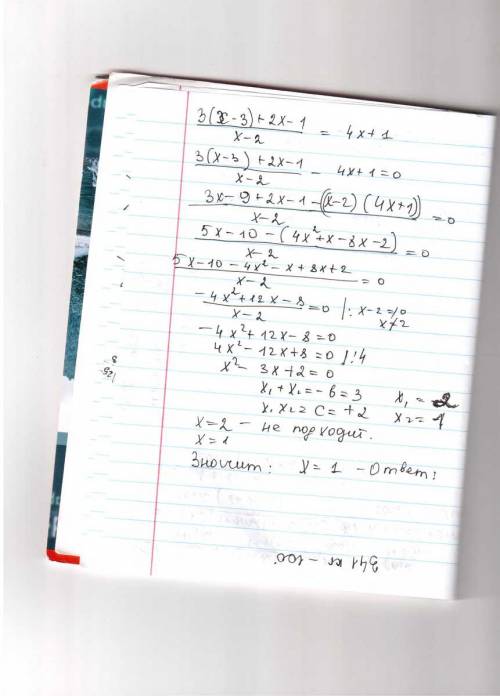 3(x-3)+2x-1 / x-2 = 4x+1
3(x-3)+2x-1 / x-2 - 4x+1=0
3x-9+2x-1-((x-2)(4x+1)) / x-2 =0
5x-10-(4x²+x-8x-2) / x-2 =0
5x-10-4x²-x+8x+2 / x-2 =0
-4x²+12x-8 / x-2 =0 |: x-2≠0
x≠2
-4x²+12x-8=0
4x²-12x+8=0 |:4
x²-3x+2=0
x₁+x₂=-b=3 x₁=2
x₁x₂=c=+2 x₂=1
x=2 - не подходит.
x=1
Значит: x=1 - Ответ:
341 кг - 100